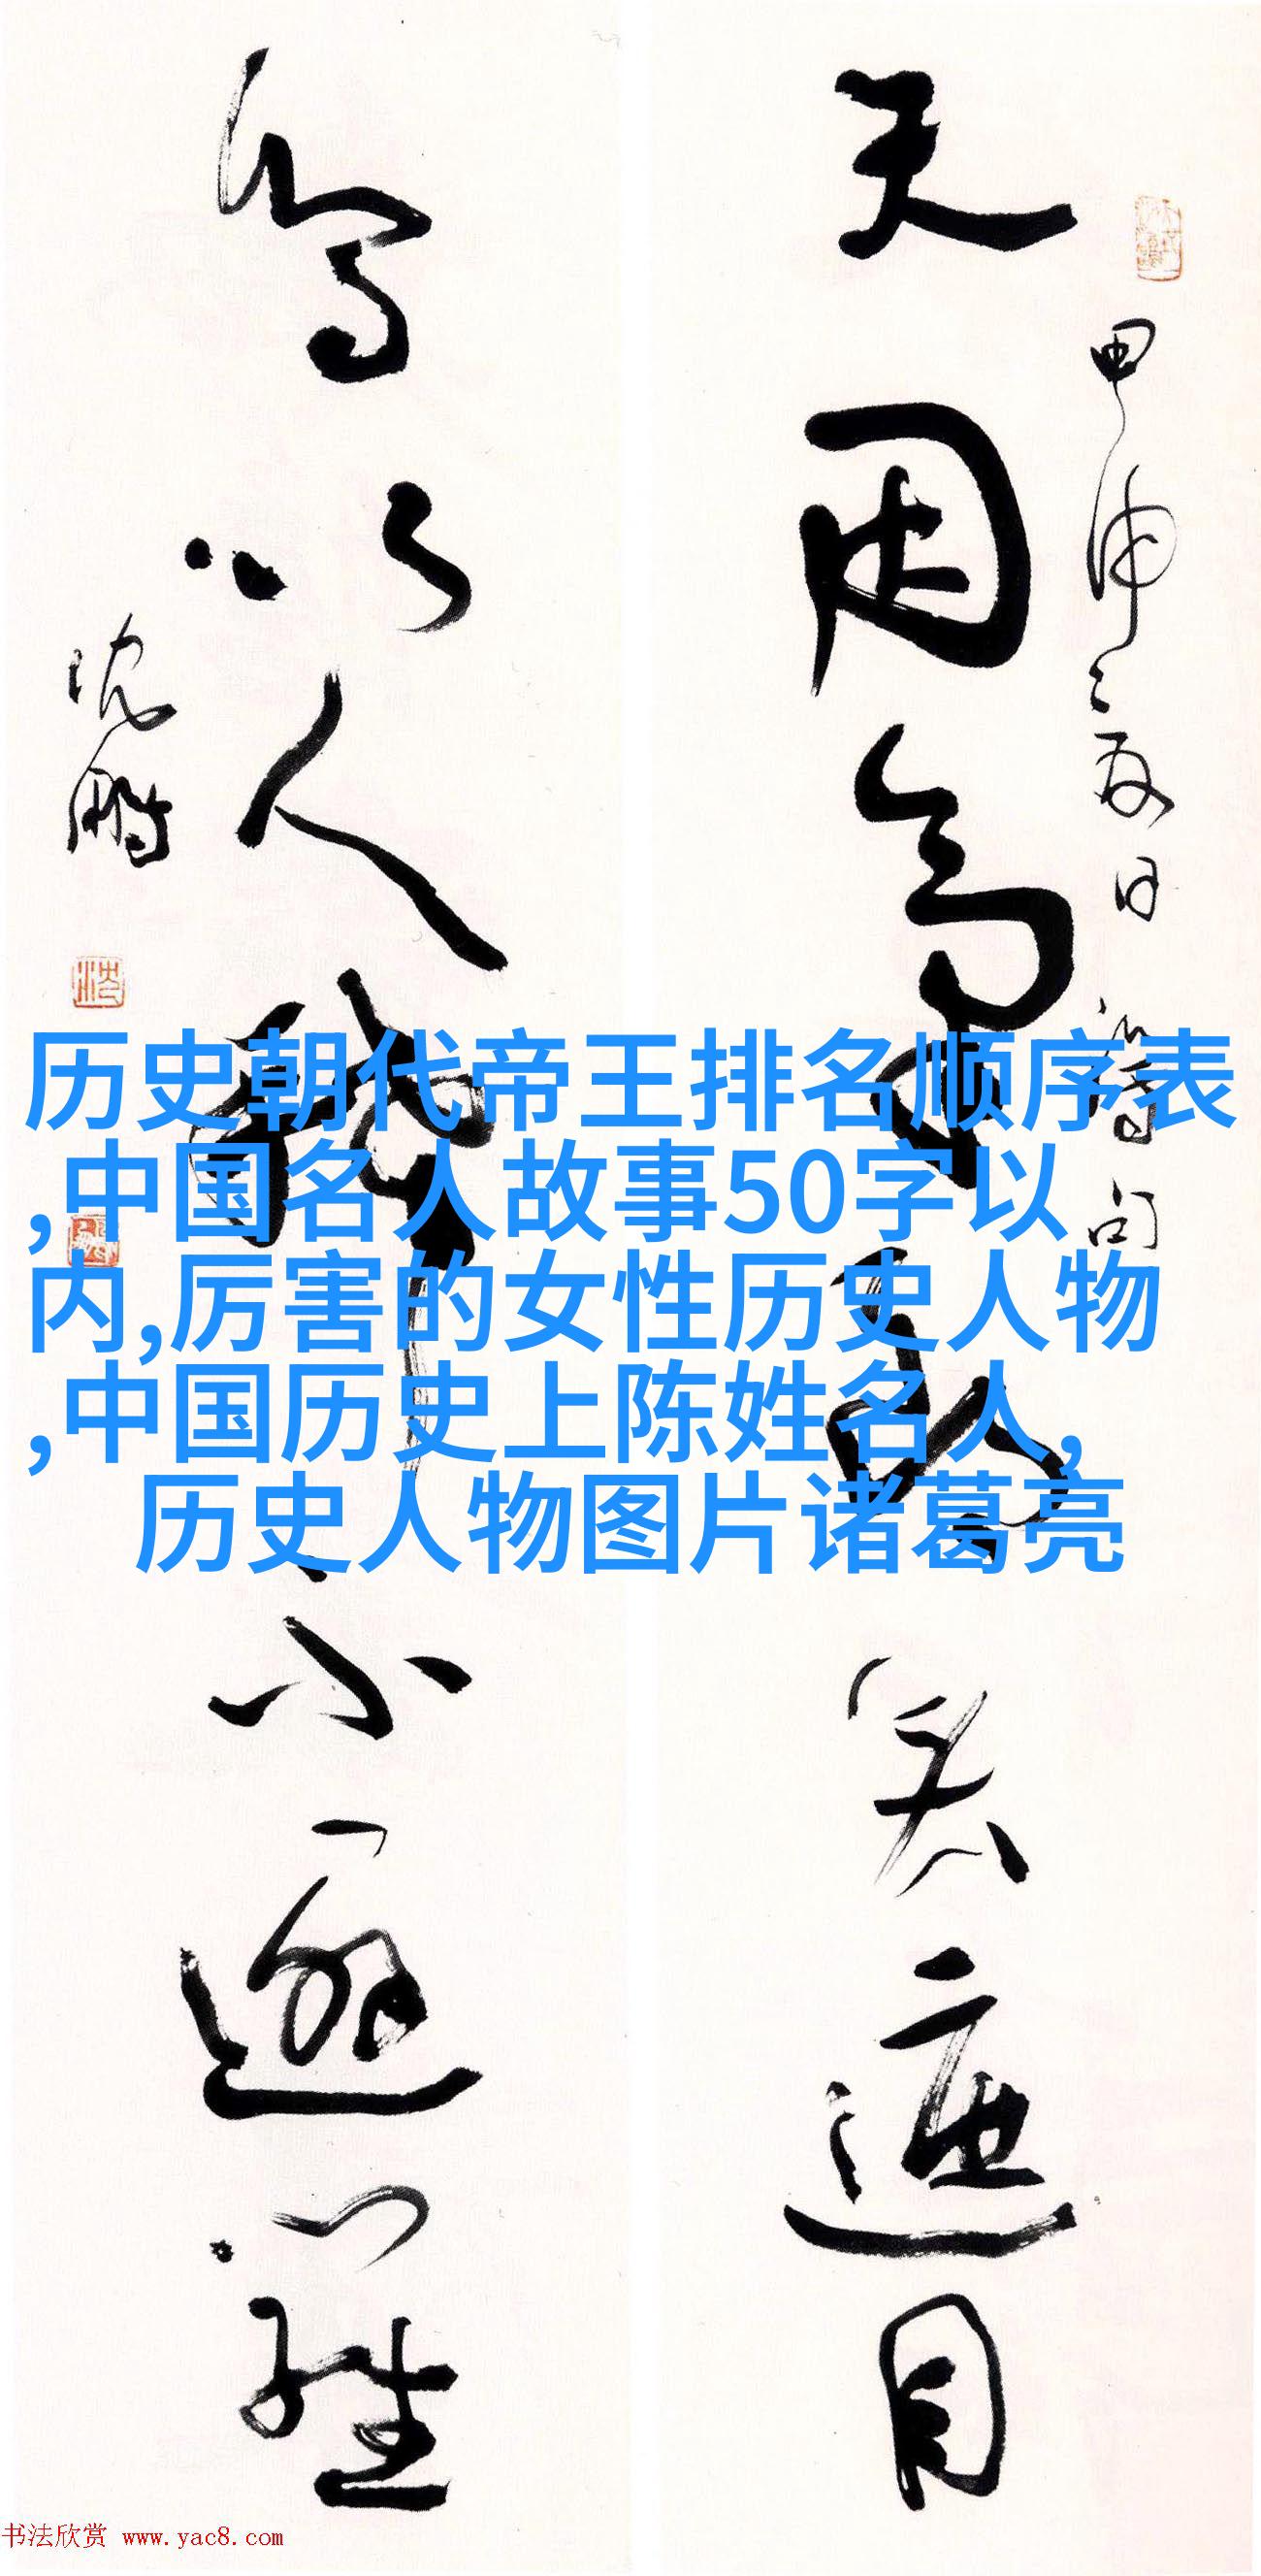 历史朝代帝王排名顺序表
,中国名人故事50字以
内,厉害的女性历史人物
,中国历史上陈姓名人,
历史人物图片诸葛亮
甲申
天因高 遮目
鸟以人 不避
沈鹏
书法欣赏 www.yac8.com